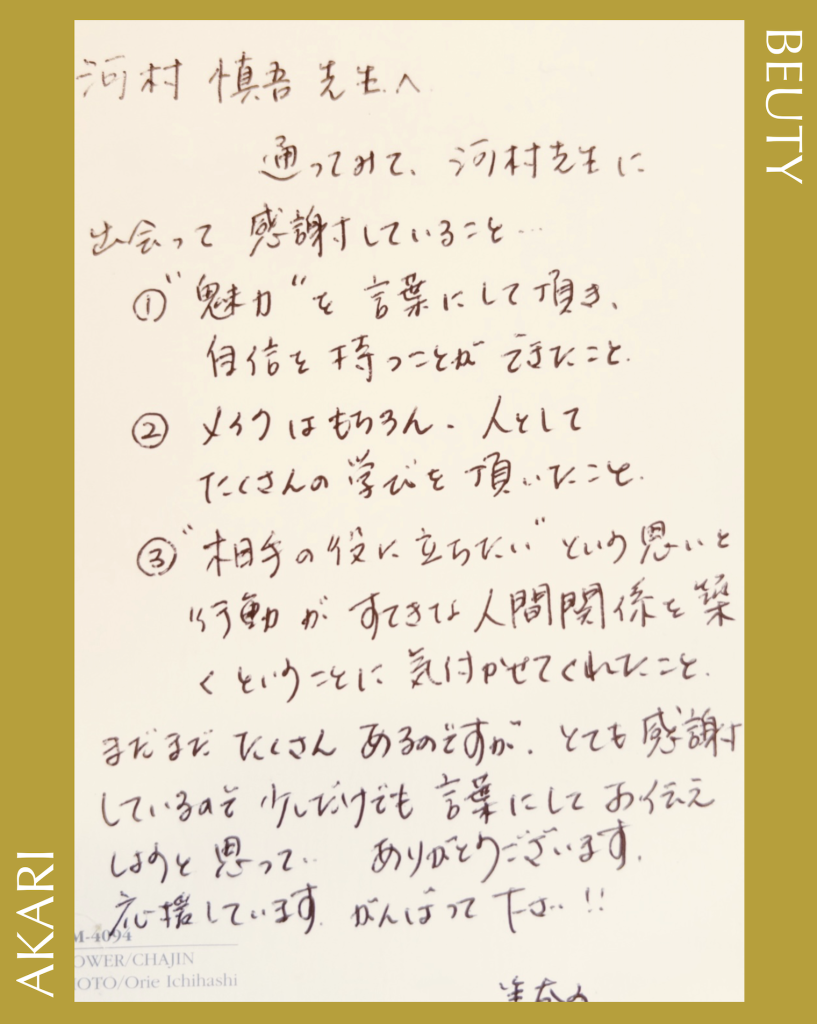 BEUTY
河村 慎吾 先生へ
通ってみて、河村先生に
出会って 感謝していること…
①"魅力"を 言葉にして頂き、
自信を 持つことが できたこと.
② メイクはもちろん、人として
たくさんの学びを 頂いたこと.
③"相手の役に立ちたい"という思いと
行動が すてきな人間関係を築
くということに 気付かせてくれたこと.
まだまだ たくさん あるのですが、とても感謝
しているので 少しだけでも 言葉にして お伝え
しようと 思って… ありがとうございます.
応援しています. がんばって 下さい!!
M-4094
OWER/CHAJIN
OTO/Orie Ichihashi
AKARI